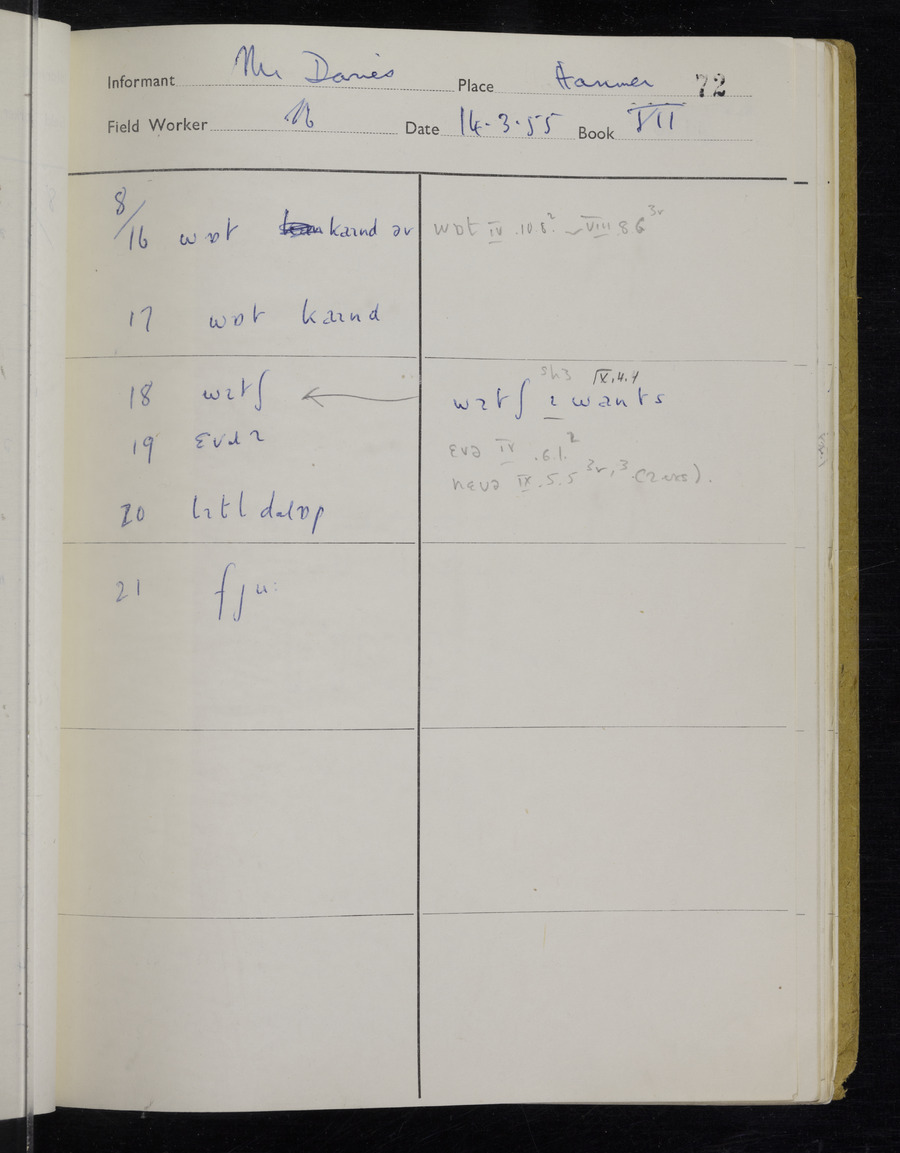 Informant Mr Davies Place Hanmer 72
Field Worker Date 14.3.55 Book VII
8/16 wɒt kaɪnd əv wɒt IV .10.8² VIII 86 3r
17 wɒt kaɪnd
sh3 IX.4.4
18 wɪtʃ ← wɪtʃ ɪ wants
19 ɛvə IV .6.1.²
nɛvə IX.5.5 3r,3
20 lɪtl
21 fju: